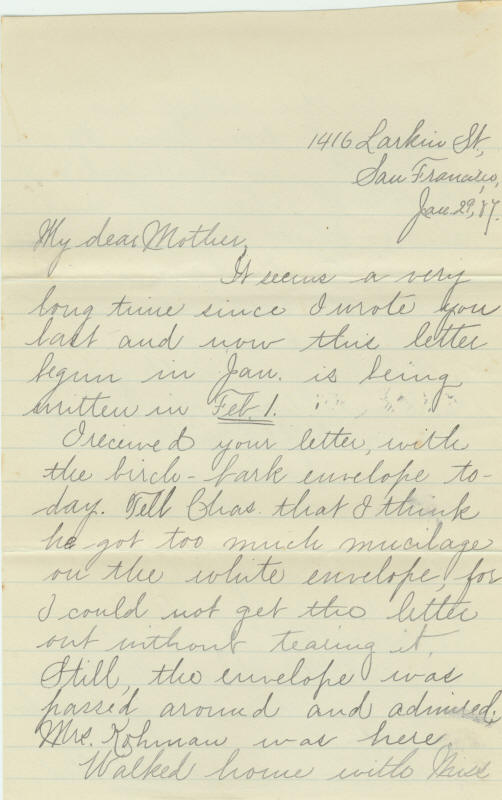 1416 Larkin St,
San Francisco,
Jan. 29, '87.
My dear Mother,
It seems a very
long time since I wrote you
last and now this letter
begun in Jan. is being
written in Feb. 1.
I received your letter, with
the birch-bark envelope to-
day. Tell Chas. that I think
he got too much mucilage
on the white envelope, for
I could not get the letter
out without tearing it.
Still, the envelope was
passed around and admired.
Mrs. Kohman was here.
Walked home with Miss